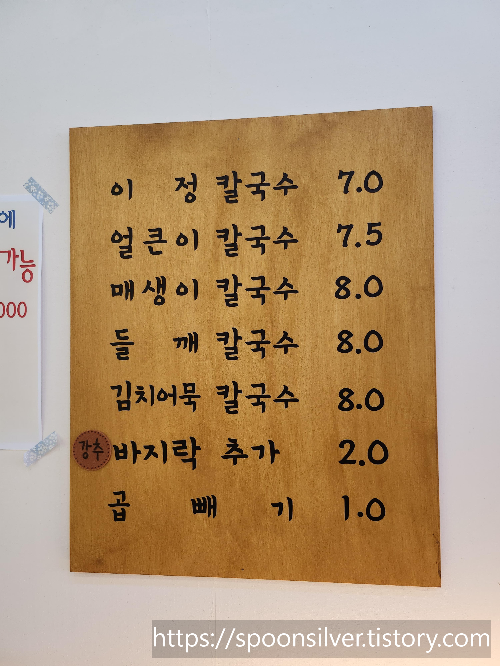 이 정 칼국수 7.0
얼큰이 칼국수 7.5
매생이 칼국수 8.0
들 깨 칼국수 8.0
김치어묵 칼국수 8.0
강추 바지락 추가 2.0
곱 빼 기 1.0
에
가능
000
https://spoonsilver.tistory.com